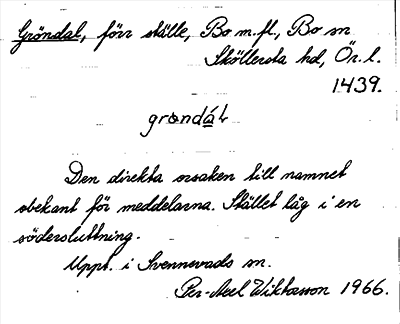 Gröndal, förr ställe, Bo m.fl., Bo sn
Sköllersta hd, Ör. l.
1439.
grøndál
Den direkta orsaken till namnet
obekant för meddelarna. Stället låg i en
södersluttning.
Uppt. i Svennevads sn.
Per-Axel Wiktorsson 1966.